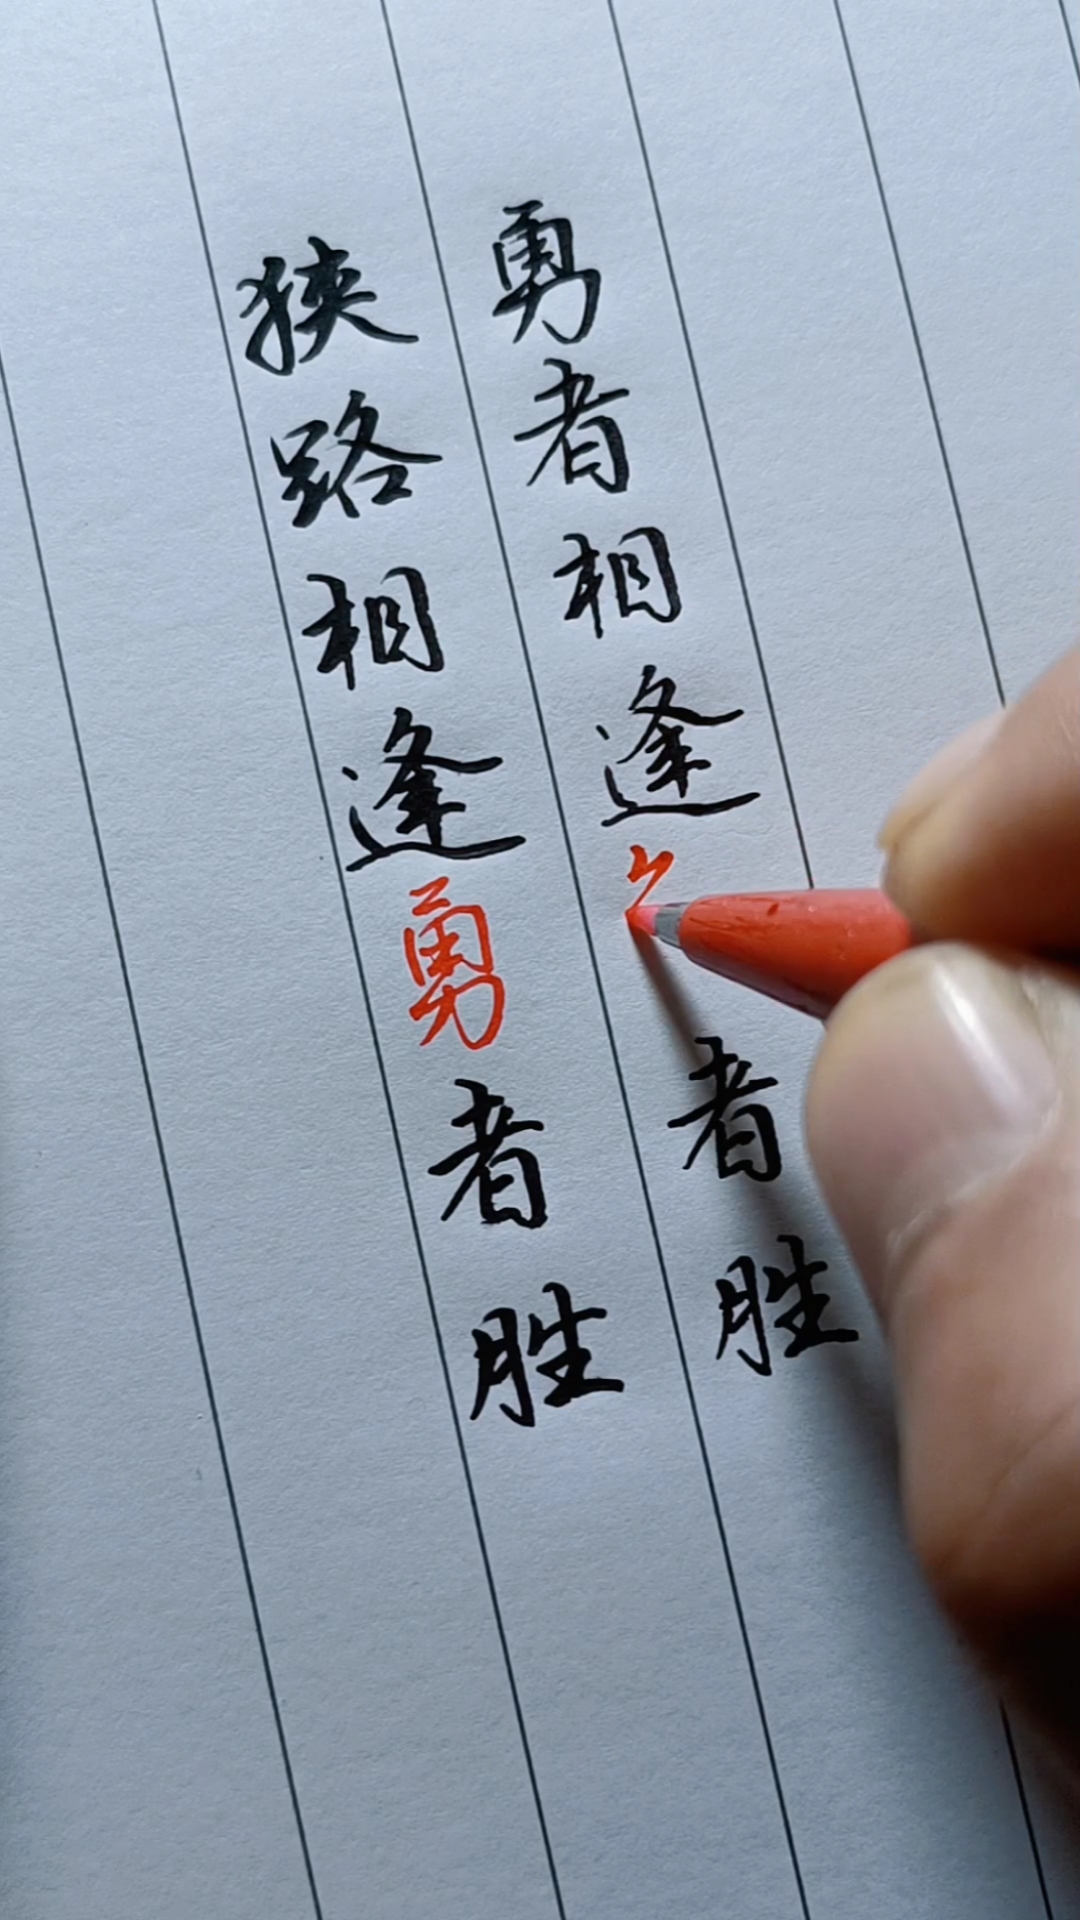 狭路相逢勇者胜
勇者相逢 者胜